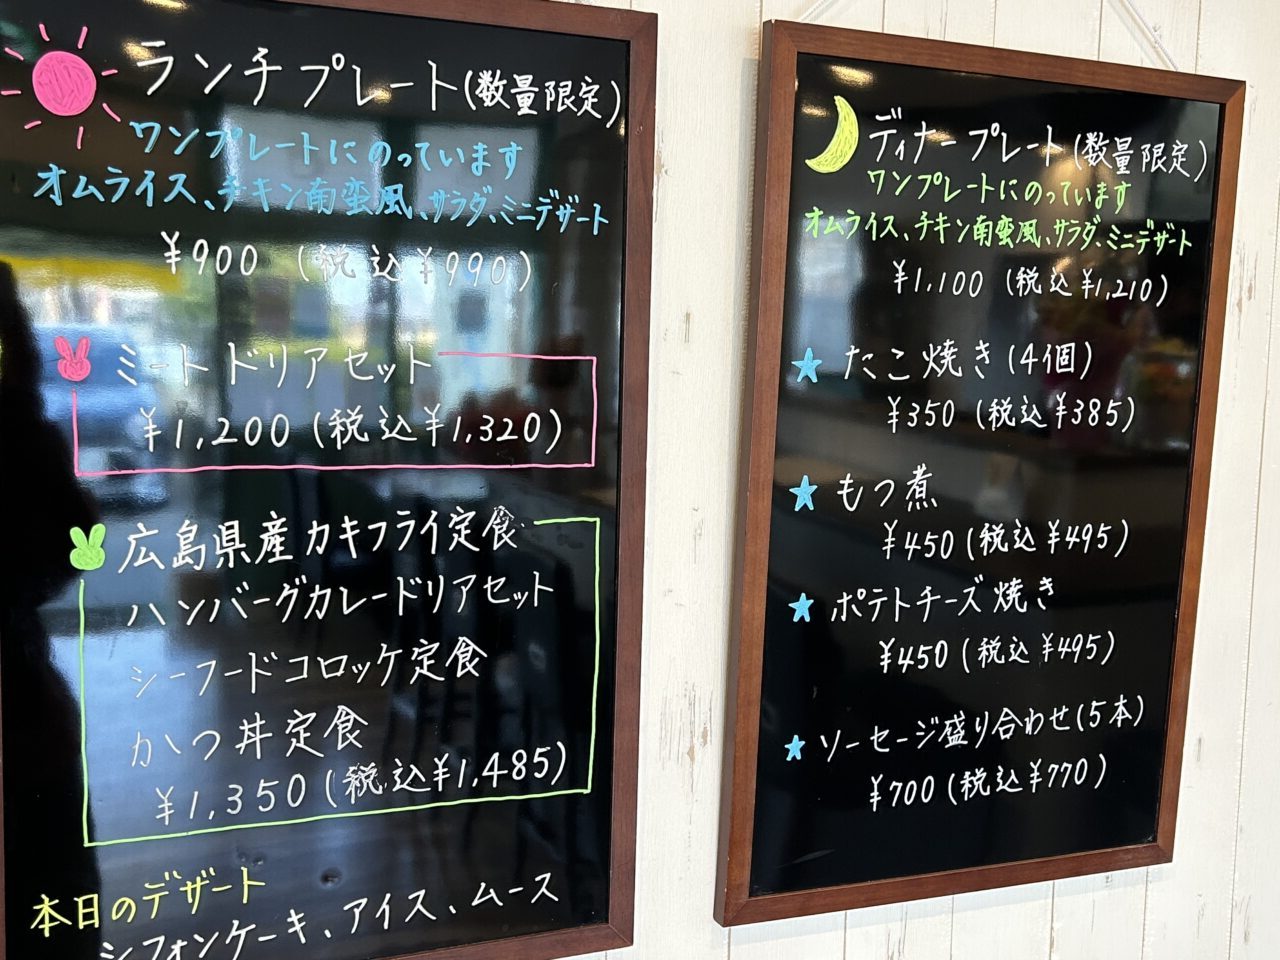 ランチプレート(数量限定)
ワンプレートにのっています
オムライス、チキン南蛮風、サラダ、ミニデザート
¥900 (税込¥990)
ミートドリアセット
¥1,200(税込¥1,320)
広島県産カキフライ定食
ハンバーグカレードリアセット
シーフードコロッケ定食
かつ丼定食
¥1,350(税込¥1,485)
本日のデザート
シフォンケーキ、アイス、ムース
ディナープレート(数量限定)
ワンプレートにのっています
オムライス、チキン南蛮風、サラダ、ミニデザート
¥1,100 (税込¥1,210)
たこ焼き(4個)
¥350 (税込¥385)
もつ煮
¥450(税込¥495)
ポテトチーズ焼き
¥450(税込¥495)
ソーセージ盛り合わせ(5本)
¥700(税込¥770)